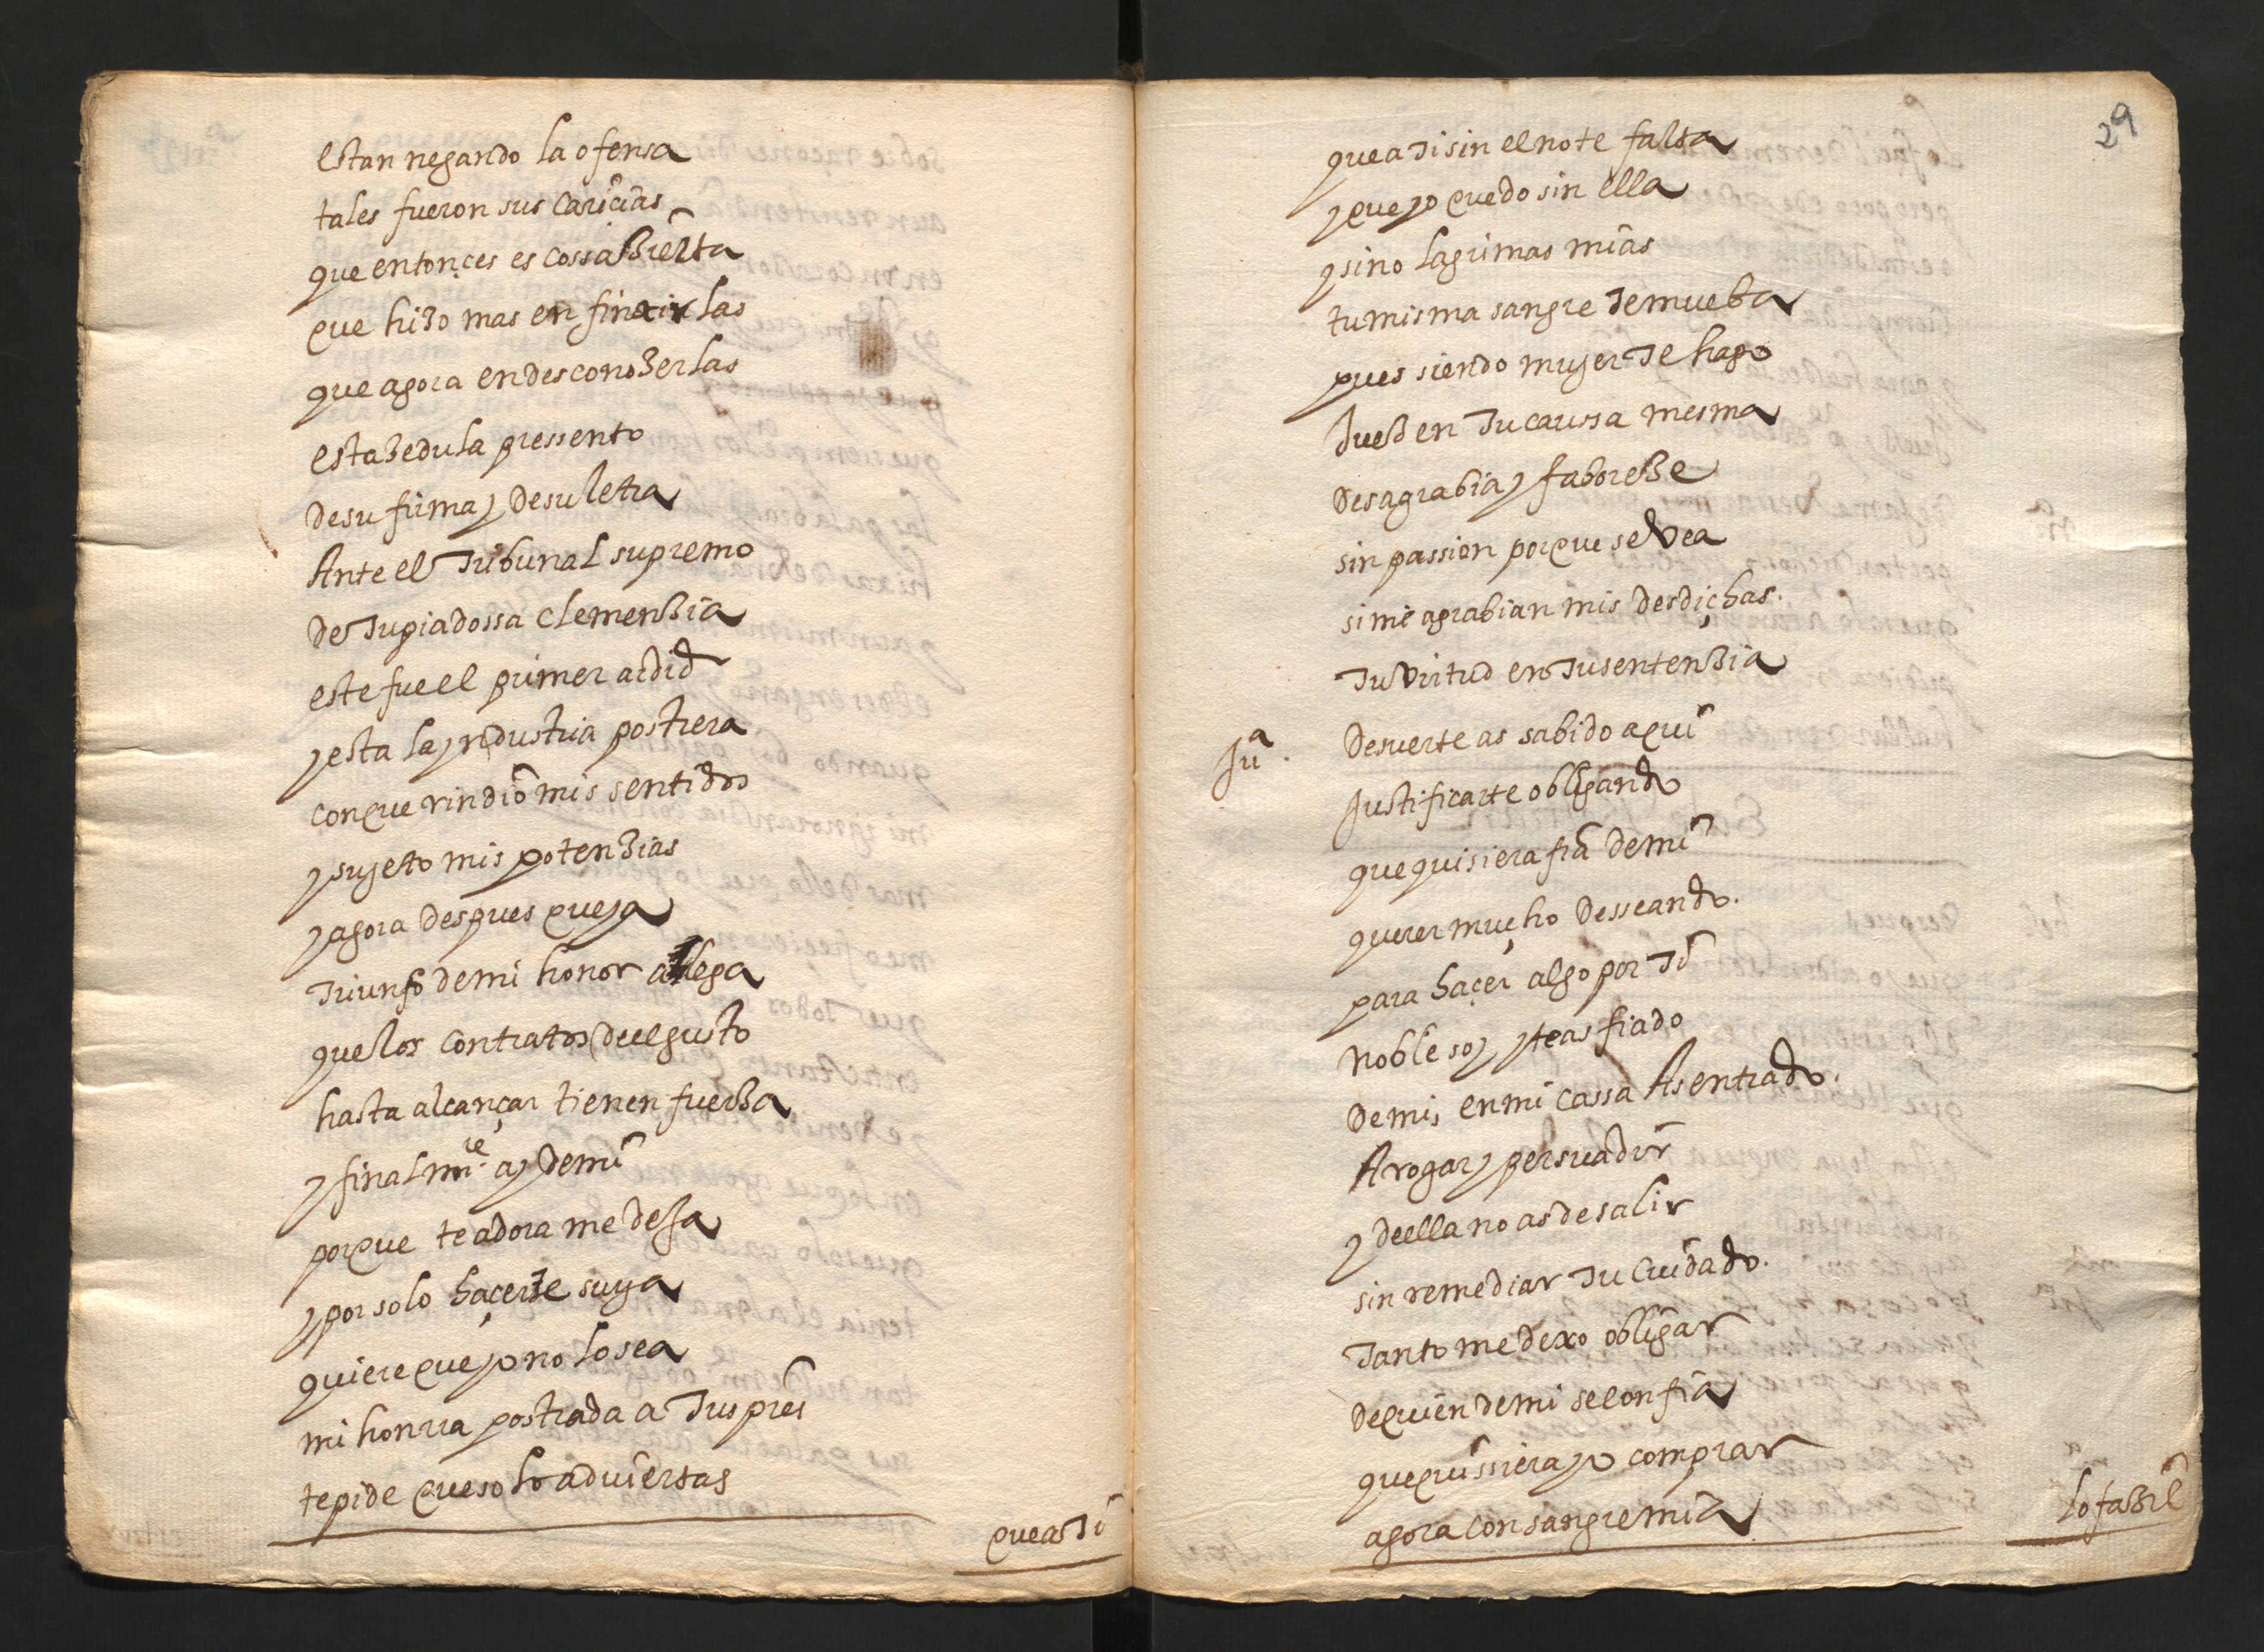 estan negando la ofensa
tales fueron sus cariçias
que entonçes es cossa Bierta
que hiZo mas en finxirlas
que agora en desconoZerlas
esta Zedula pressento
de su firma y de su letra
Ante el Tribunal supremo
de Tu piadossa clemenZia
este fue el primer ardid
y esta la yndustria postrera
con que rindio mis sentidos
y sujeto mis potenZias
y agora despues que ya
Triunfo de mi honor alega
que los contratos de el gusto
hasta alcançar tienen fuerZa
y finalmte. ay de mi
porque te adora me deja
y por solo haçerse suya
quiere que yo no lo sea
mi honrra postrada a Tus pies
te pide que solo adviertas
que a Ti
29
que a Ti sin el no te falta
y que yo quedo sin ella
y si no lagrimas mias
tu misma sangre Te mueba
pues siendo mujer Te hago
JueZ en Tu caussa mesma
desagrabia y faboreZe
sin passion porque se vea
si me agrabian mis desdichas.
Tu virtud en Tu sentenZia
Jua. De suerte as sabido aqui
Justificarte obligando
que quisiera fia de mi
querer mucho desseando.
para haçer algo por Ti
noble soy y te as fiado
de mi, en mi cassa As entrado.
A rogar y persuadir
y de ella no as de salir
sin remediar Tu cuidado.
Tanto me dexo obligar
de quien de mi se confia
que quissiera yo comprar
agora con sangre mia
lo faZil